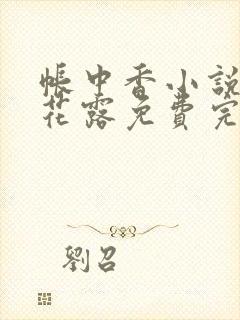 帳中香小說
花露免費完
劉召